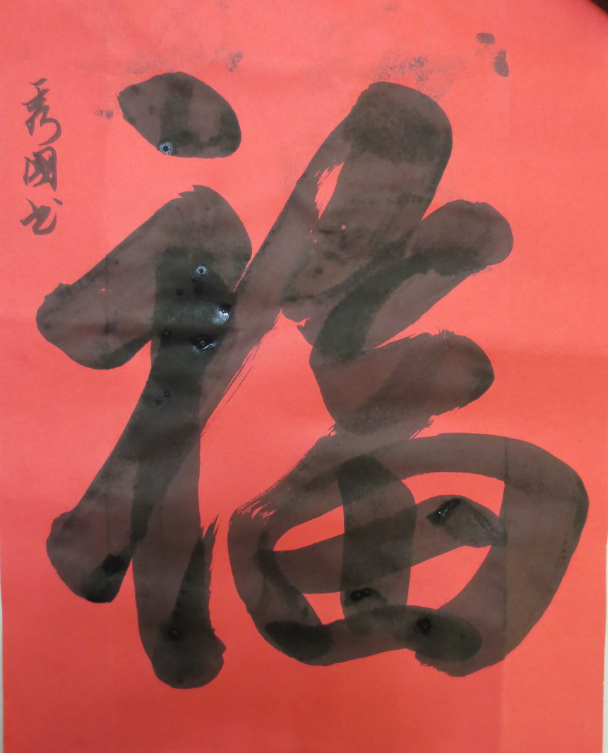 福
秀国书